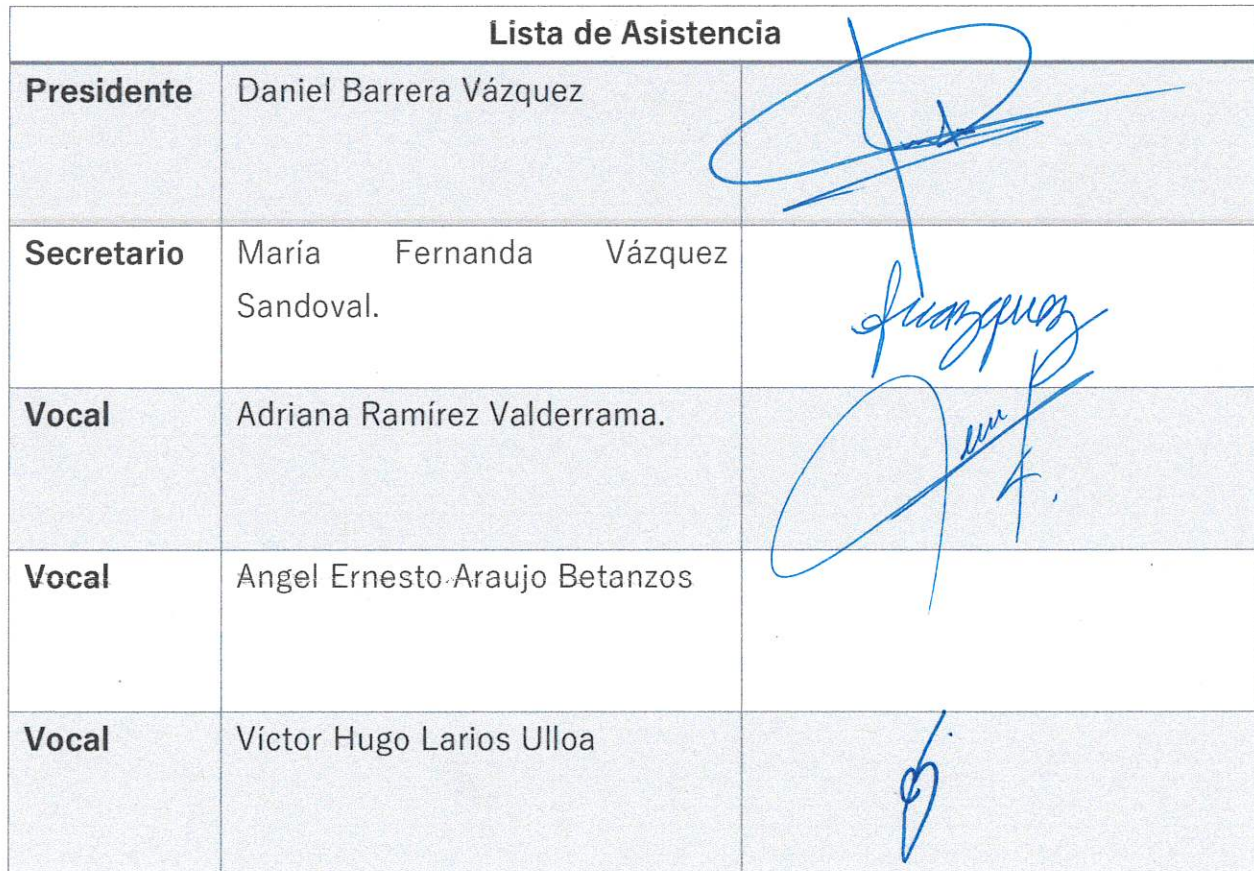 Lista de Asistencia
Presidente Daniel Barrera Vázquez
Secretario María Fernanda Vázquez
Sandoval.
fvazquez
Vocal Adriana Ramírez Valderrama.
Vocal Angel Ernesto Araujo Betanzos
Vocal Víctor Hugo Larios Ulloa